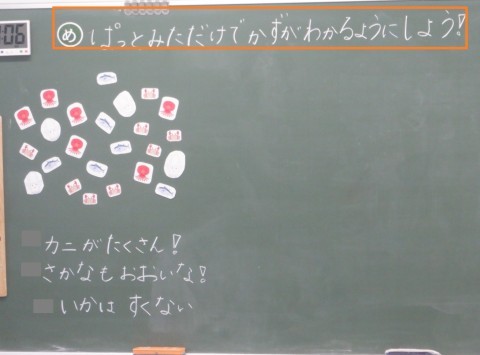 06
め ぱっとみただけでかずがわかるようにしよう!
カニがたくさん!
さかなもおおいな!
いかは すくない